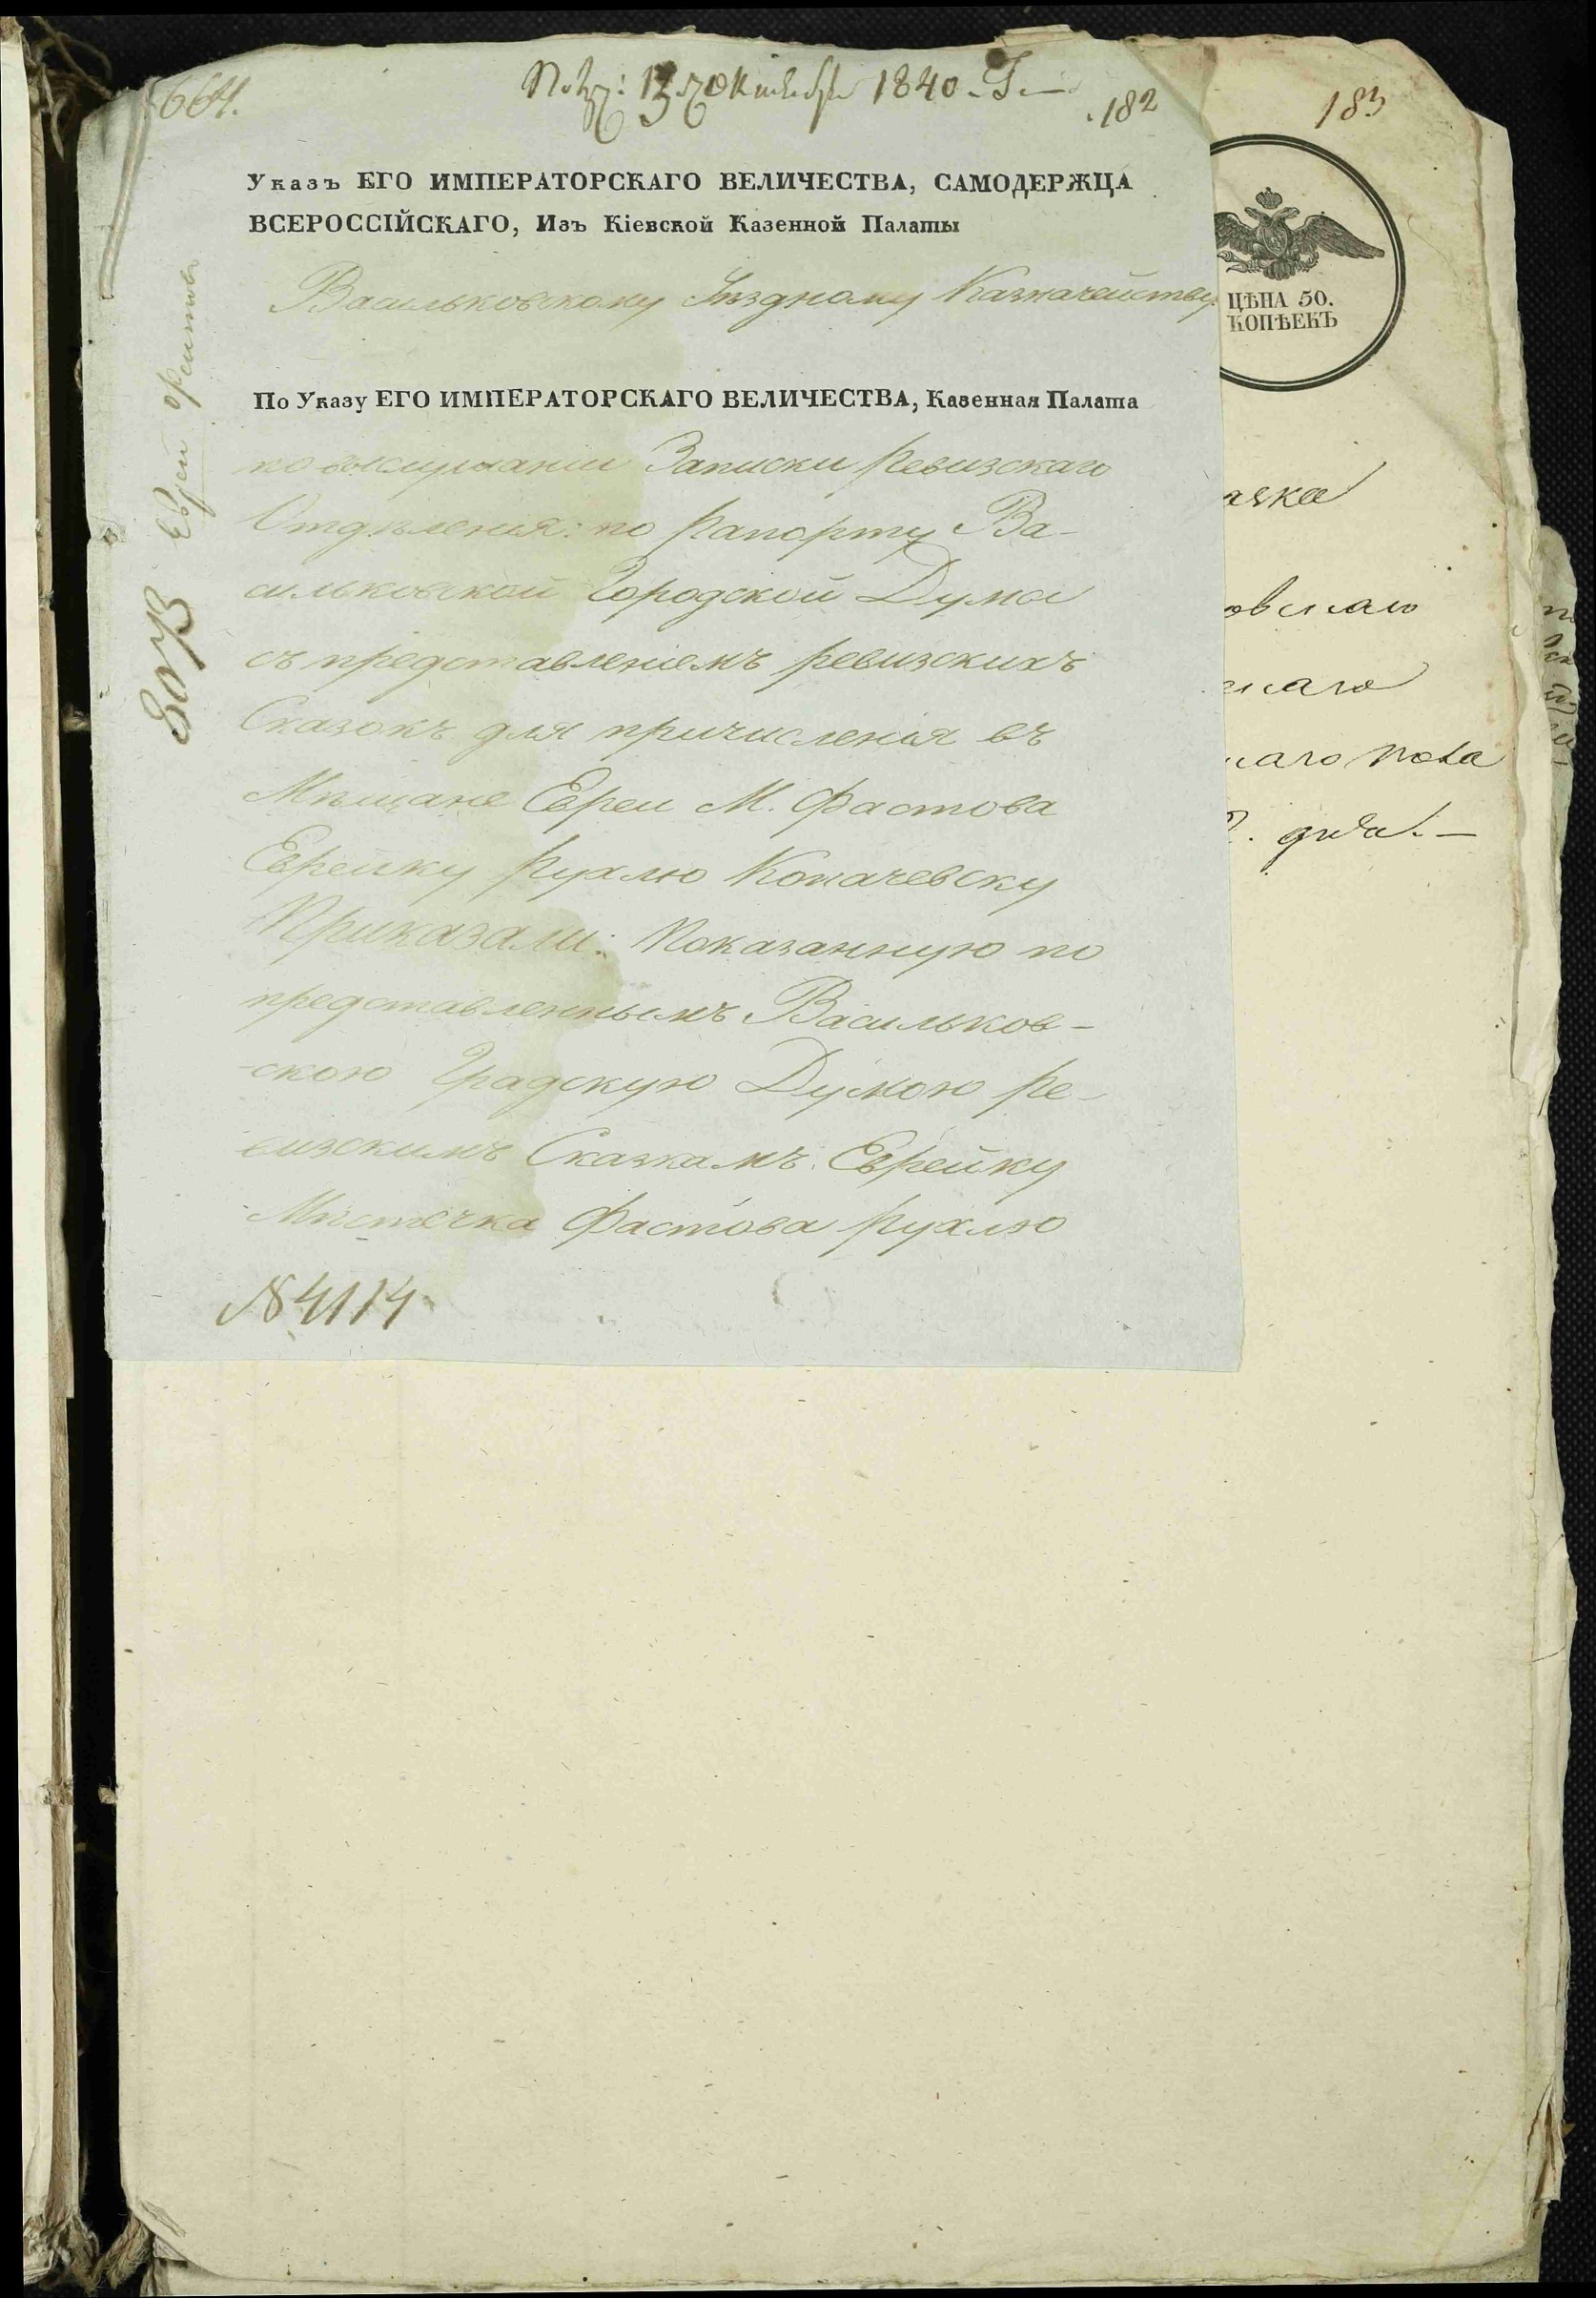 664.
Получ: 13 Октября 1840. Г.
182
183
Указъ ЕГО ИМПЕРАТОРСКАГО ВЕЛИЧЕСТВА, САМОДЕРЖЦА
ВСЕРОССІЙСКАГО, Изъ Кіевской Казенной Палаты
Васильковскому Уѣздному Казначейству.
ЦѢНА 50.
КОПѢЕКЪ
По Указу ЕГО ИМПЕРАТОРСКАГО ВЕЛИЧЕСТВА, Казенная Палата
по выслушаніи Записки Ревизскаго
Отдѣленія: по рапорту Ва-
сильковской Городской Думы
съ представленіемъ ревизскихъ
Сказокъ для причисленія въ
Мѣщане Евреи М. Фастова
Еврейку Рухлю Копачевску
Приказали: Показанную по
представленнымъ Васильков-
-скою Градскую Думою ре-
визскимъ Сказкамъ Еврейку
Мѣстечка Фастова Рухлю
№ 4114